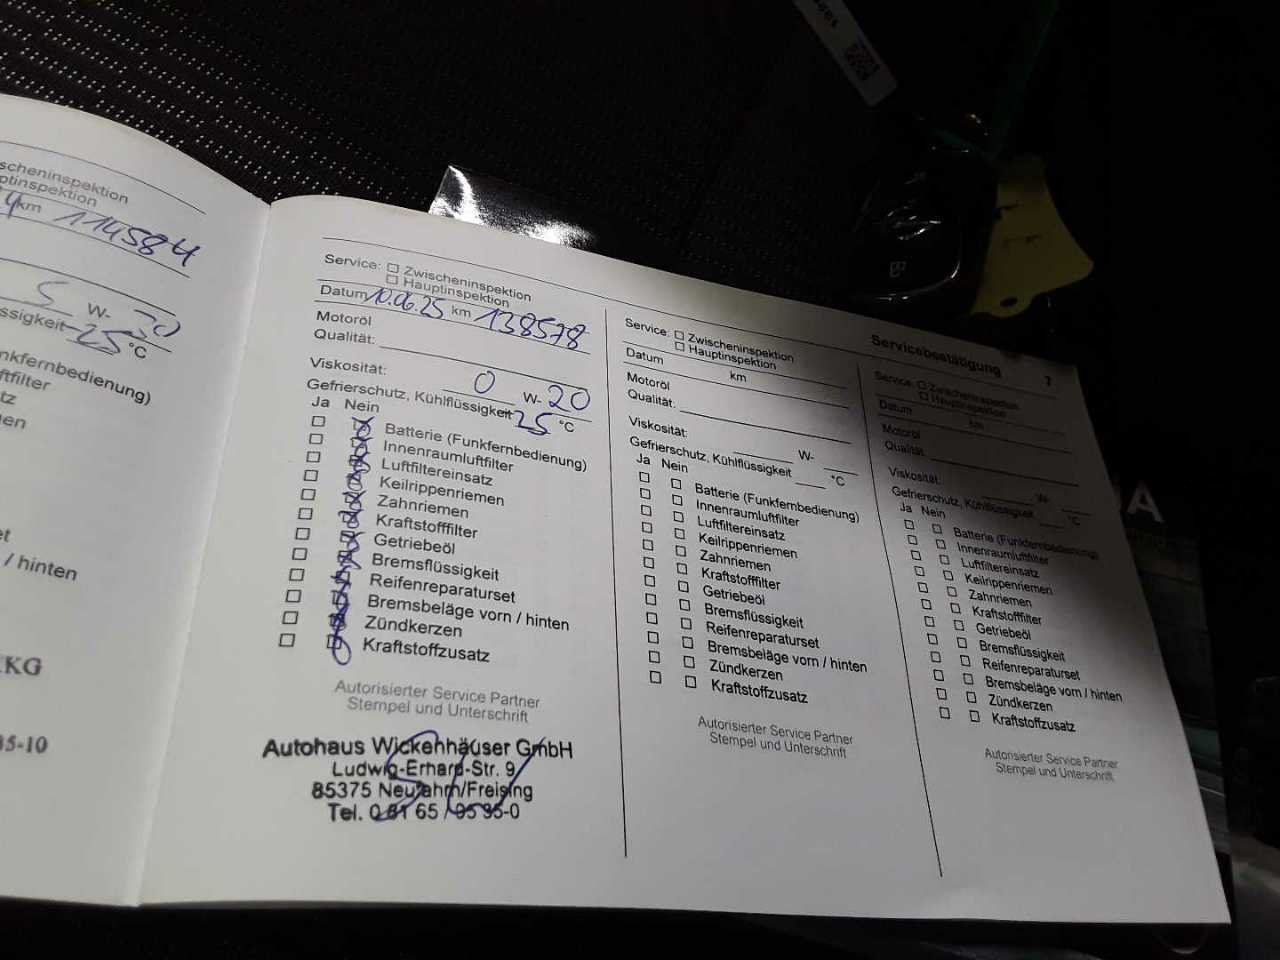 scheninspektion
ptinspektion
km 114584
5 W- 30
ssigkeit -25 °C
nkfernbedienung)
tfilter
tz
en
/ hinten
KG
35-10
Service: ☐ Zwischeninspektion
☐ Hauptinspektion
Datum 10.06.25 km 138578
Motoröl
Qualität:
Viskosität: 0 W- 20
Gefrierschutz, Kühlflüssigkeit -25 °C
Ja Nein
Batterie (Funkfernbedienung)
Innenraumluftfilter
Luftfiltereinsatz
Keilrippenriemen
Zahnriemen
Kraftstofffilter
Getriebeöl
Bremsflüssigkeit
Reifenreparaturset
Bremsbeläge vorn / hinten
Zündkerzen
Kraftstoffzusatz
Autorisierter Service Partner
Stempel und Unterschrift
Autohaus Wickenhäuser GmbH
Ludwig-Erhard-Str. 9
85375 Neufahrn/Freising
Tel. 0 81 65 / 95 95-0
Service: ☐ Zwischeninspektion
☐ Hauptinspektion
Datum km
Motoröl
Qualität:
Viskosität: W-
Gefrierschutz, Kühlflüssigkeit °C
Ja Nein
Batterie (Funkfernbedienung)
Innenraumluftfilter
Luftfiltereinsatz
Keilrippenriemen
Zahnriemen
Kraftstofffilter
Getriebeöl
Bremsflüssigkeit
Reifenreparaturset
Bremsbeläge vorn / hinten
Zündkerzen
Kraftstoffzusatz
Autorisierter Service Partner
Stempel und Unterschrift
Servicebestätigung 7
Service: ☐ Zwischeninspektion
☐ Hauptinspektion
Datum km
Motoröl
Qualität:
Viskosität: W-
Gefrierschutz, Kühlflüssigkeit °C
Ja Nein
Batterie (Funkfernbedienung)
Innenraumluftfilter
Luftfiltereinsatz
Keilrippenriemen
Zahnriemen
Kraftstofffilter
Getriebeöl
Bremsflüssigkeit
Reifenreparaturset
Bremsbeläge vorn / hinten
Zündkerzen
Kraftstoffzusatz
Autorisierter Service Partner
Stempel und Unterschrift